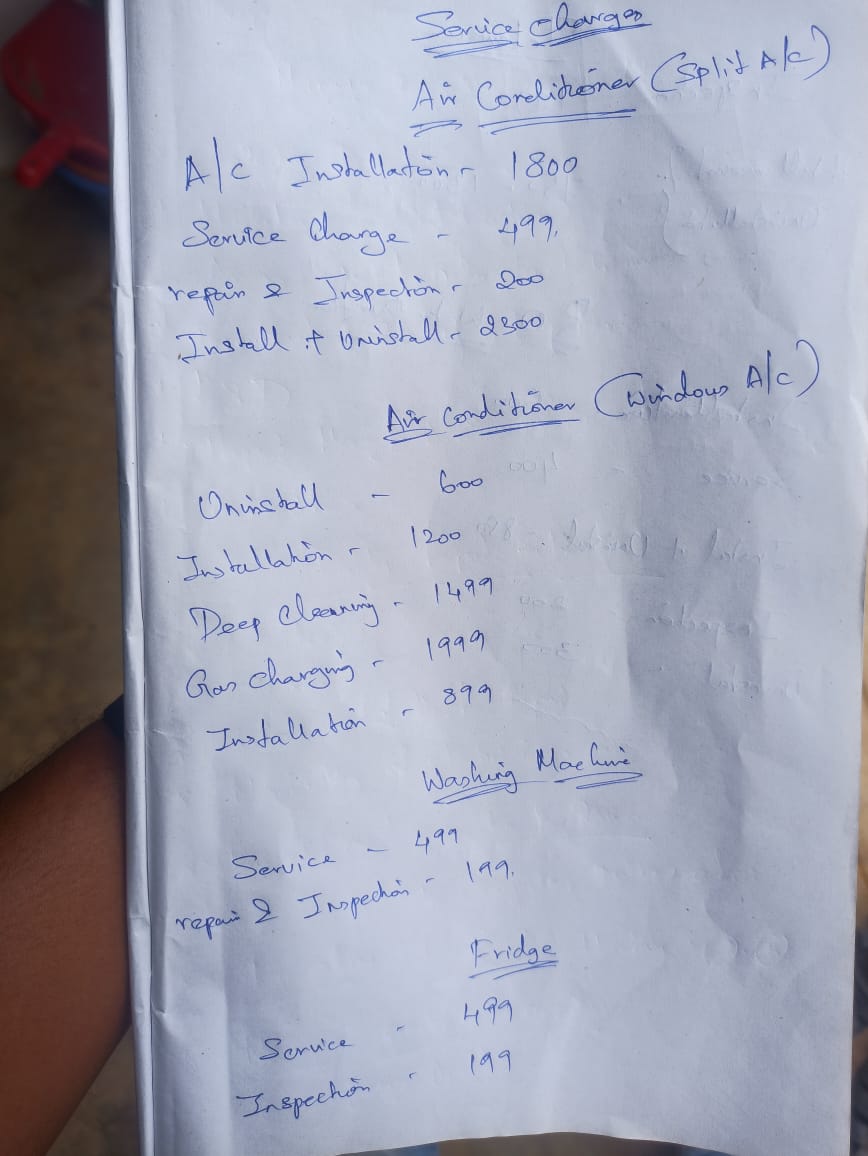 Service Charges
Air Conditioner (Split A/c)
A/c Installation - 1800
Service Charge - 499.
repair & Inspection - 200
Install + Uninstall - 2300
Air Conditioner (Window A/c)
Uninstall - 600
Installation - 1200
Deep Cleaning - 1499
Gas Charging - 1999
Installation - 899
Washing Machine
Service - 499
repair & Inspection - 199.
Fridge
Service - 499
Inspection - 199